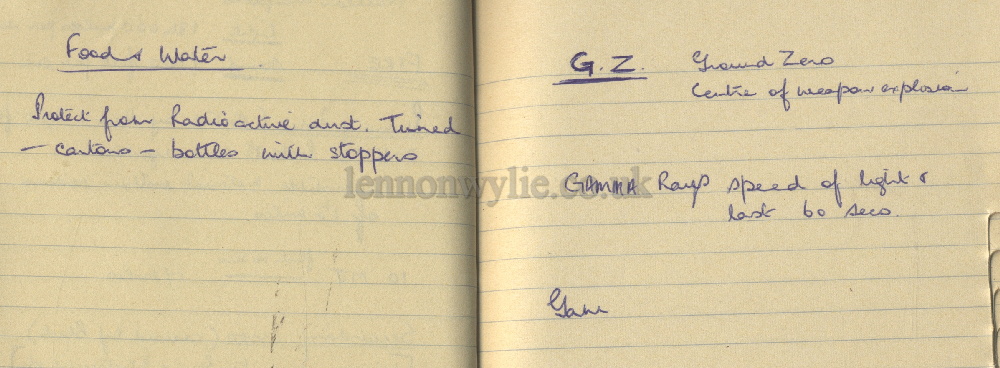 Food & Water
Protect from Radioactive dust. Tinned
— cartons — bottles with stoppers
G.Z. Ground Zero
Centre of weapon explosion
GAMMA Rays speed of light &
last 60 secs.
Gam
lennonwylie.co.uk